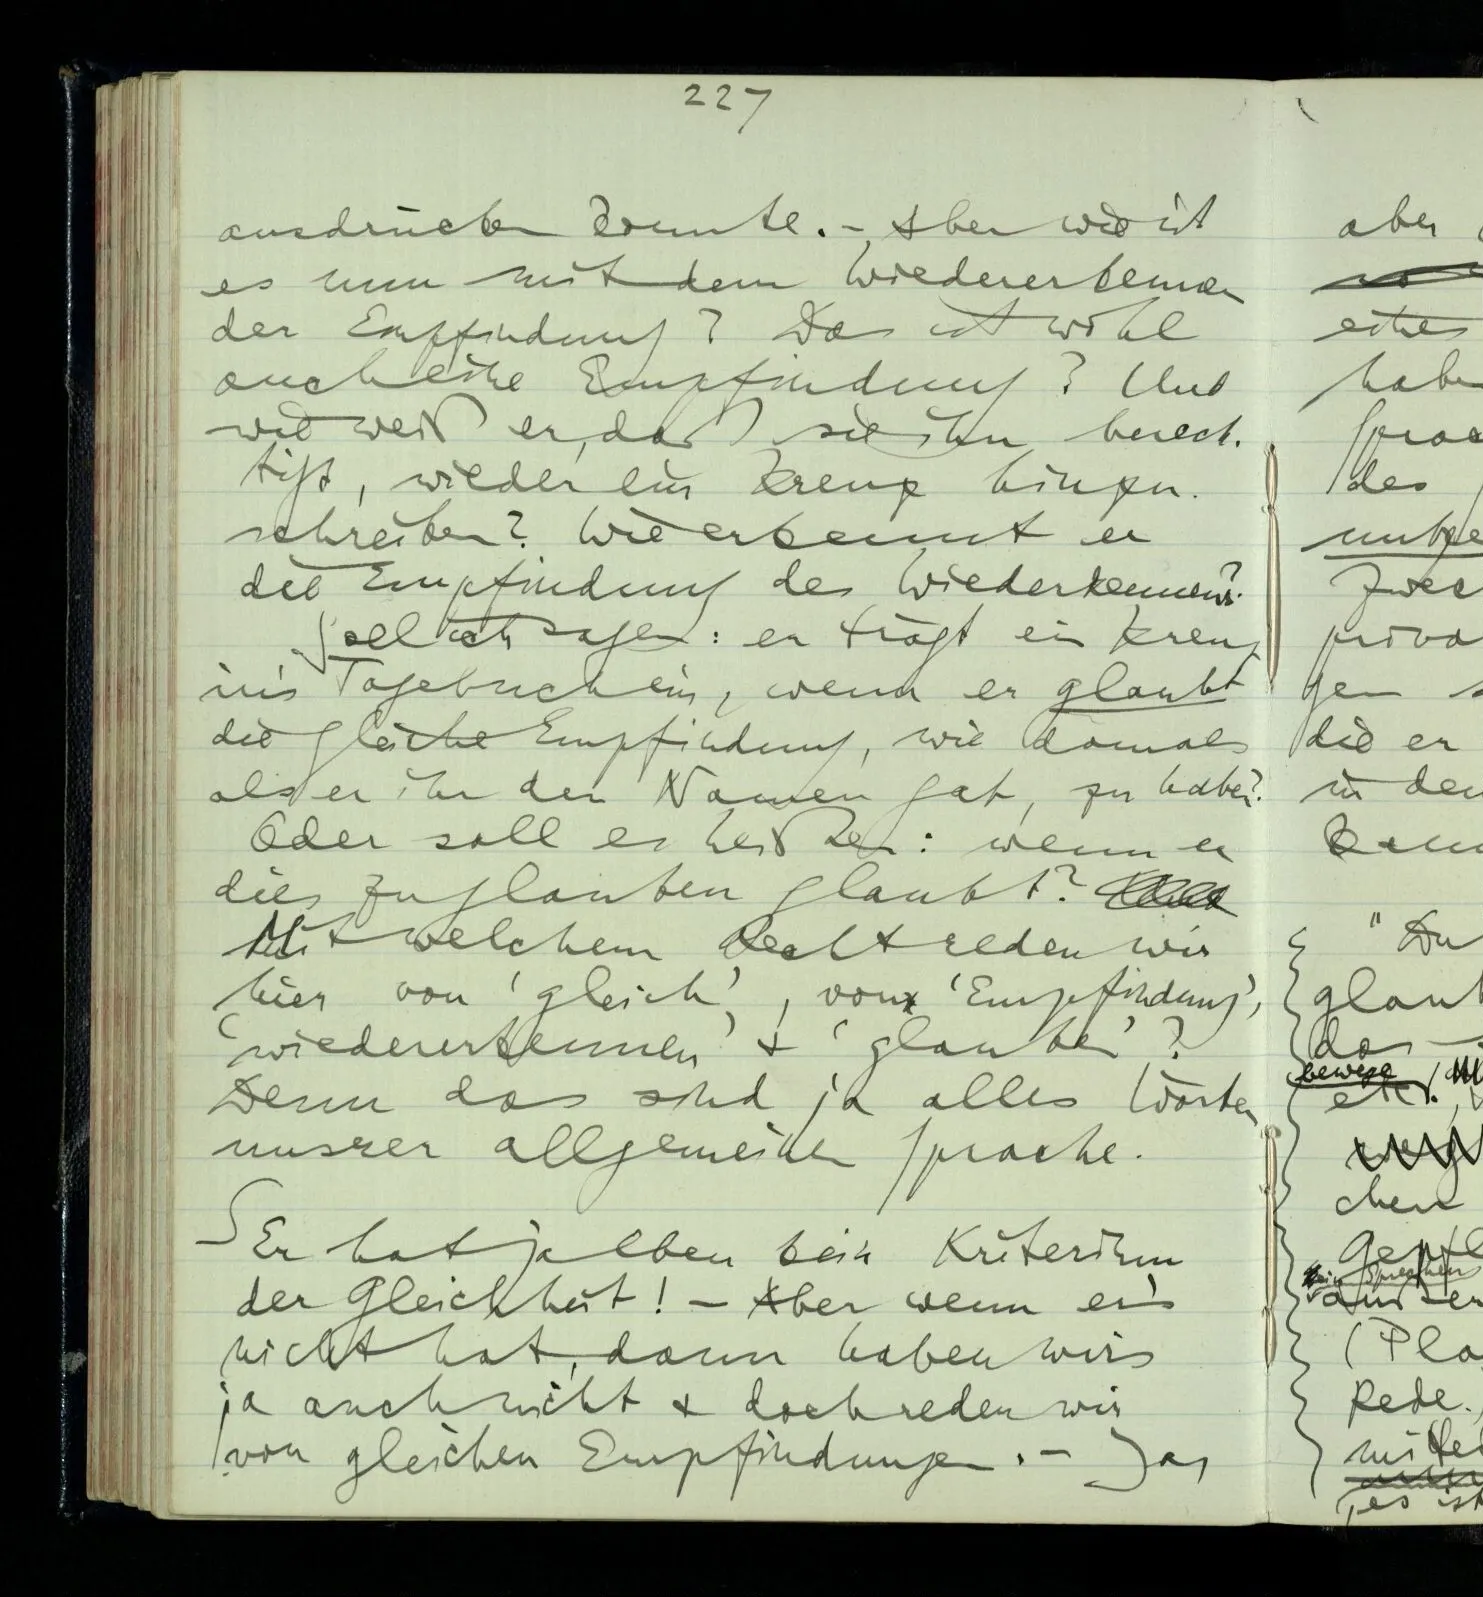 227
ausdrücken könnte. – Aber wie ist
es nun mit dem Wiedererkennen
der Empfindung? Das ist wohl
auch eine Empfindung? Und
wie weiß er, daß sie ihn berech-
tigt, wieder ein Kreuz hinzu-
schreiben? Wie erkennt er
die Empfindung des Wiederkennens?
Soll ich sagen: er trägt ein Kreuz
in's Tagebuch ein, wenn er glaubt
die gleiche Empfindung, wie damals
als er ihr den Namen gab, zu haben?
Oder soll es heißen: wenn er
dies zu glauben glaubt?
Mit welchem Recht reden wir
hier von ‘gleich’, von ‘Empfindung’,
‘wiedererkennen’ & ‘glauben’?
Denn das sind ja alles Worte
unsrer allgemeinen Sprache.
Er hat ja eben kein Kriterium
der Gleichheit! – Aber wenn er's
nicht hat, dann haben wir's
ja auch nicht & doch reden wir
von gleichen Empfindungen. – Das
aber
eines
habe
Sprac
des
unbe
Zwec
priva
gen
die er
in den
kann
"Du
glaub
das
bewege
etc.
chen
kein Sprechen
(Pla
Rede.
mittel
es ist